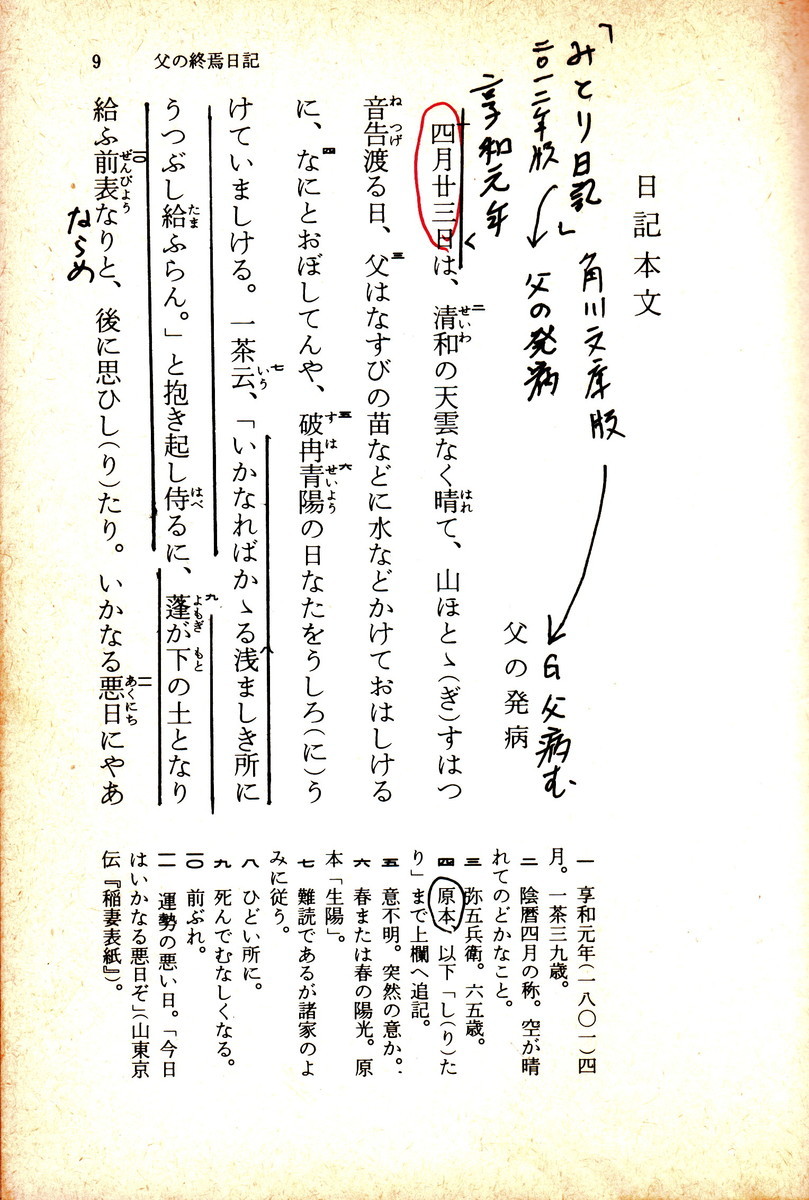 9 父の終焉日記
日記本文
「みとり日記」角川文庫版
二〇一二年版
父の発病
享和元年
父の発病
G父病む
四月廿三日は、清和の天雲なく晴て、山ほとゝ(ぎ)すはつ
音告渡る日、父はなすびの苗などに水などかけておはしける
に、なにとおぼしてんや、破冉青陽の日なたをうしろ(に)う
けていましける。一茶云、「いかなればかゝる浅ましき所に
うつぶし給ふらん。」と抱き起し侍るに、蓬が下の土となり
給ふ前表なりと、後に思ひし(り)たり。いかなる悪日にやあ
ならめ
一 享和元年(一八〇一)四
月。一茶三九歳。
二 陰暦四月の称。空が晴
れてのどかなこと。
三 弥五兵衛。六五歳。
四 原本、以下「し(り)た
り」まで上欄へ追記。
五 意不明。突然の意か。
六 春または春の陽光。原
本「生陽」。
七 難読であるが諸家のよ
みに従う。
八 ひどい所に。
九 死んでむなしくなる。
一〇 前ぶれ。
一一 運勢の悪い日。「今日
はいかなる悪日ぞ」(山東京
伝『稲妻表紙』)。